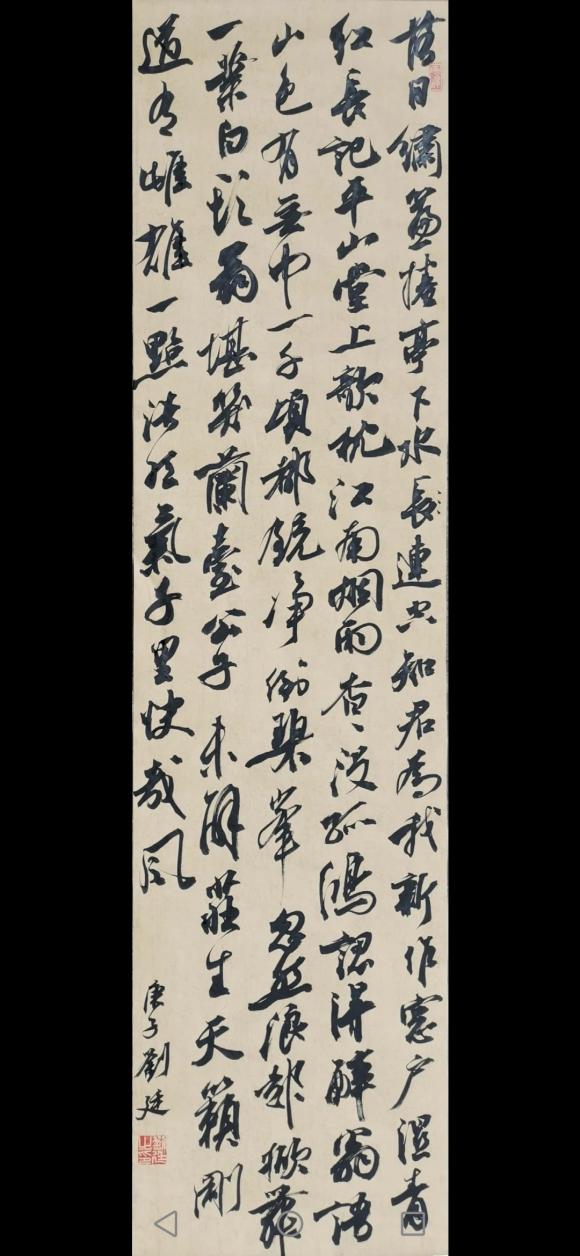 落日繡簾捲亭下水長連空知君為我新作窗戶濕青
紅長記平山堂上欹枕江南烟雨杳〻沒孤鴻認得醉翁語
山色有無中一千頃都鏡淨倒碧峯忽然浪起掀舞
一葉白頭翁堪笑蘭臺公子未解莊生天籟剛
道有雌雄一點浩然氣千里快哉風
庚子劉廷